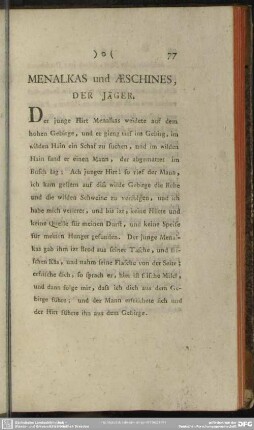 ) o (
77
MENALKAS und ÆSCHINES,
DER JÄGER.
Der junge Hirt Menalkas weidete auf dem
hohen Gebirge, und er gieng tief ins Gebirg, im
wilden Hain ein Schaf zu suchen, und im wilden
Hain fand er einen Mann, der abgemattet im
Busch lag: Ach junger Hirt! so rief der Mann,
ich kam gestern auf diß wilde Gebirge die Rehe
und die wilden Schweine zu verfolgen, und ich
habe mich verirret, und bis izt, keine Hütte und
keine Quelle für meinen Durst, und keine Speise
für meinen Hunger gefunden. Der junge Menal-
kas gab ihm izt Brod aus seiner Tasche, und fri-
schen Käs, und nahm seine Flasche von der Seite;
erfrische dich, so sprach er, hier ist frische Milch,
und dann folge mir, daß ich dich aus dem Ge-
birge führe; und der Mann erfrischte sich und
der Hirt führte ihn aus dem Gebirge.
DFG